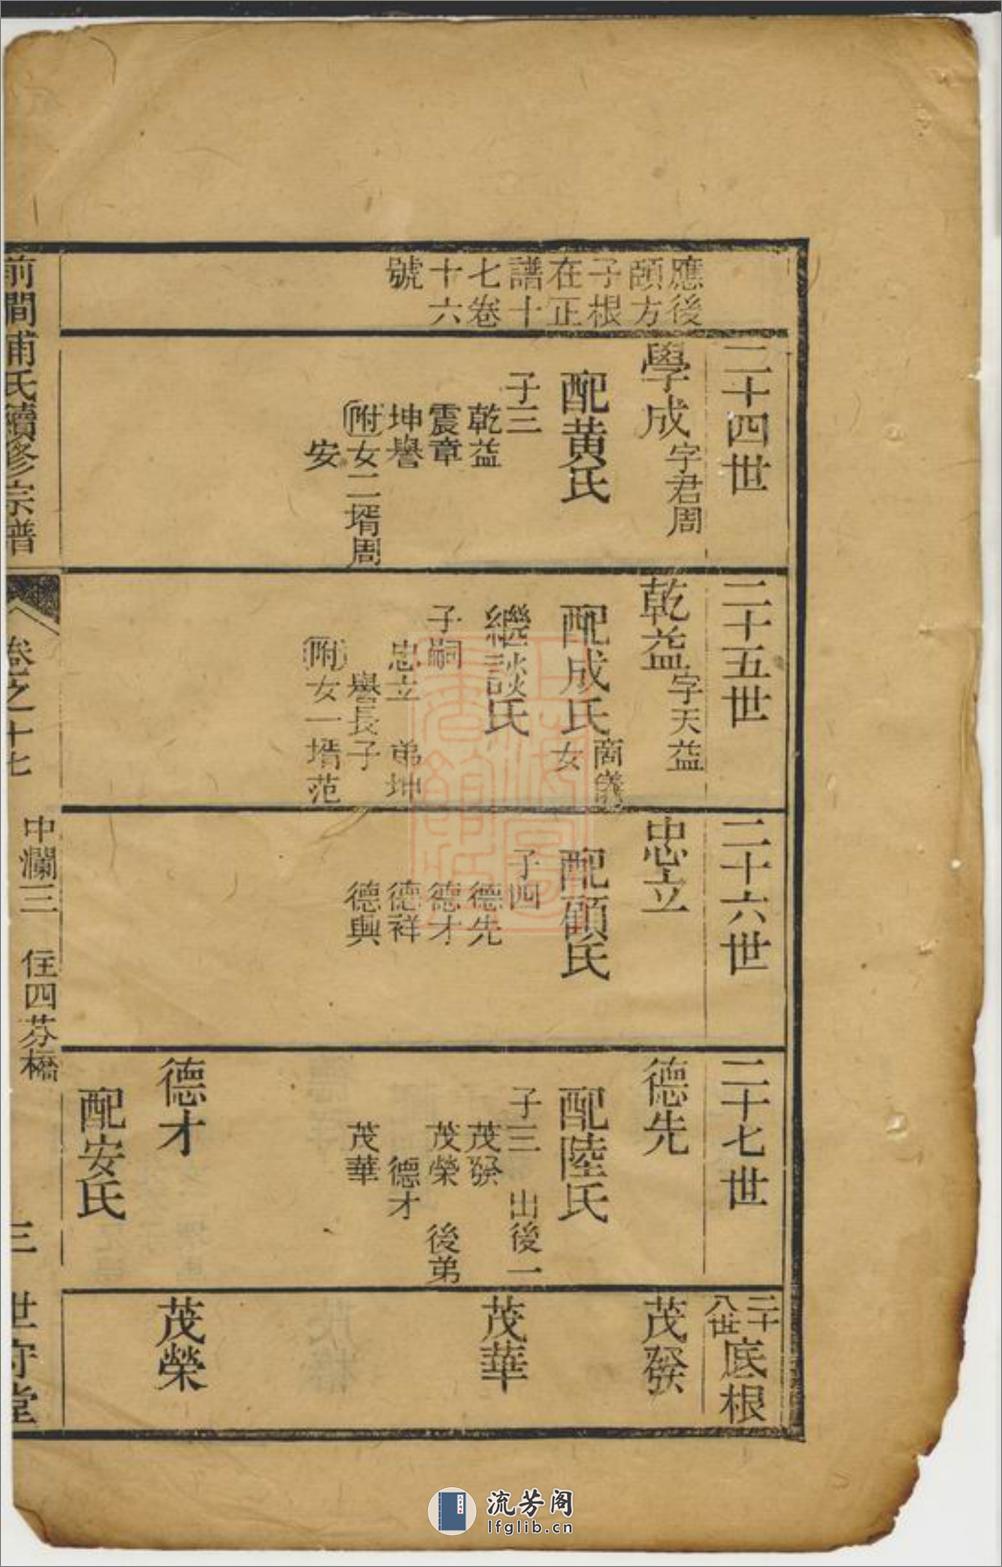 應後
頤方
子根
在正
譜十
七卷
十六
號
二十四世
學成 字君周
配黃氏
子三
乾益
震章
坤譽
附女二壻周
安
二十五世
乾益 字天益
配成氏 商義女
繼談氏
子嗣
忠立 弟坤
譽長子
附女一壻范
二十六世
忠立
配顧氏
子四
德先
德才
德祥
德興
二十七世
德先
配陸氏
子三 出後一
茂發
茂榮 後弟
德才
茂華
德才
配安氏
二十八世底根
茂發
茂華
茂榮
前澗浦氏續修宗譜
卷之十七
中瀾三 住四芬橋
三
世守堂
流芳阁
lfglib.cn